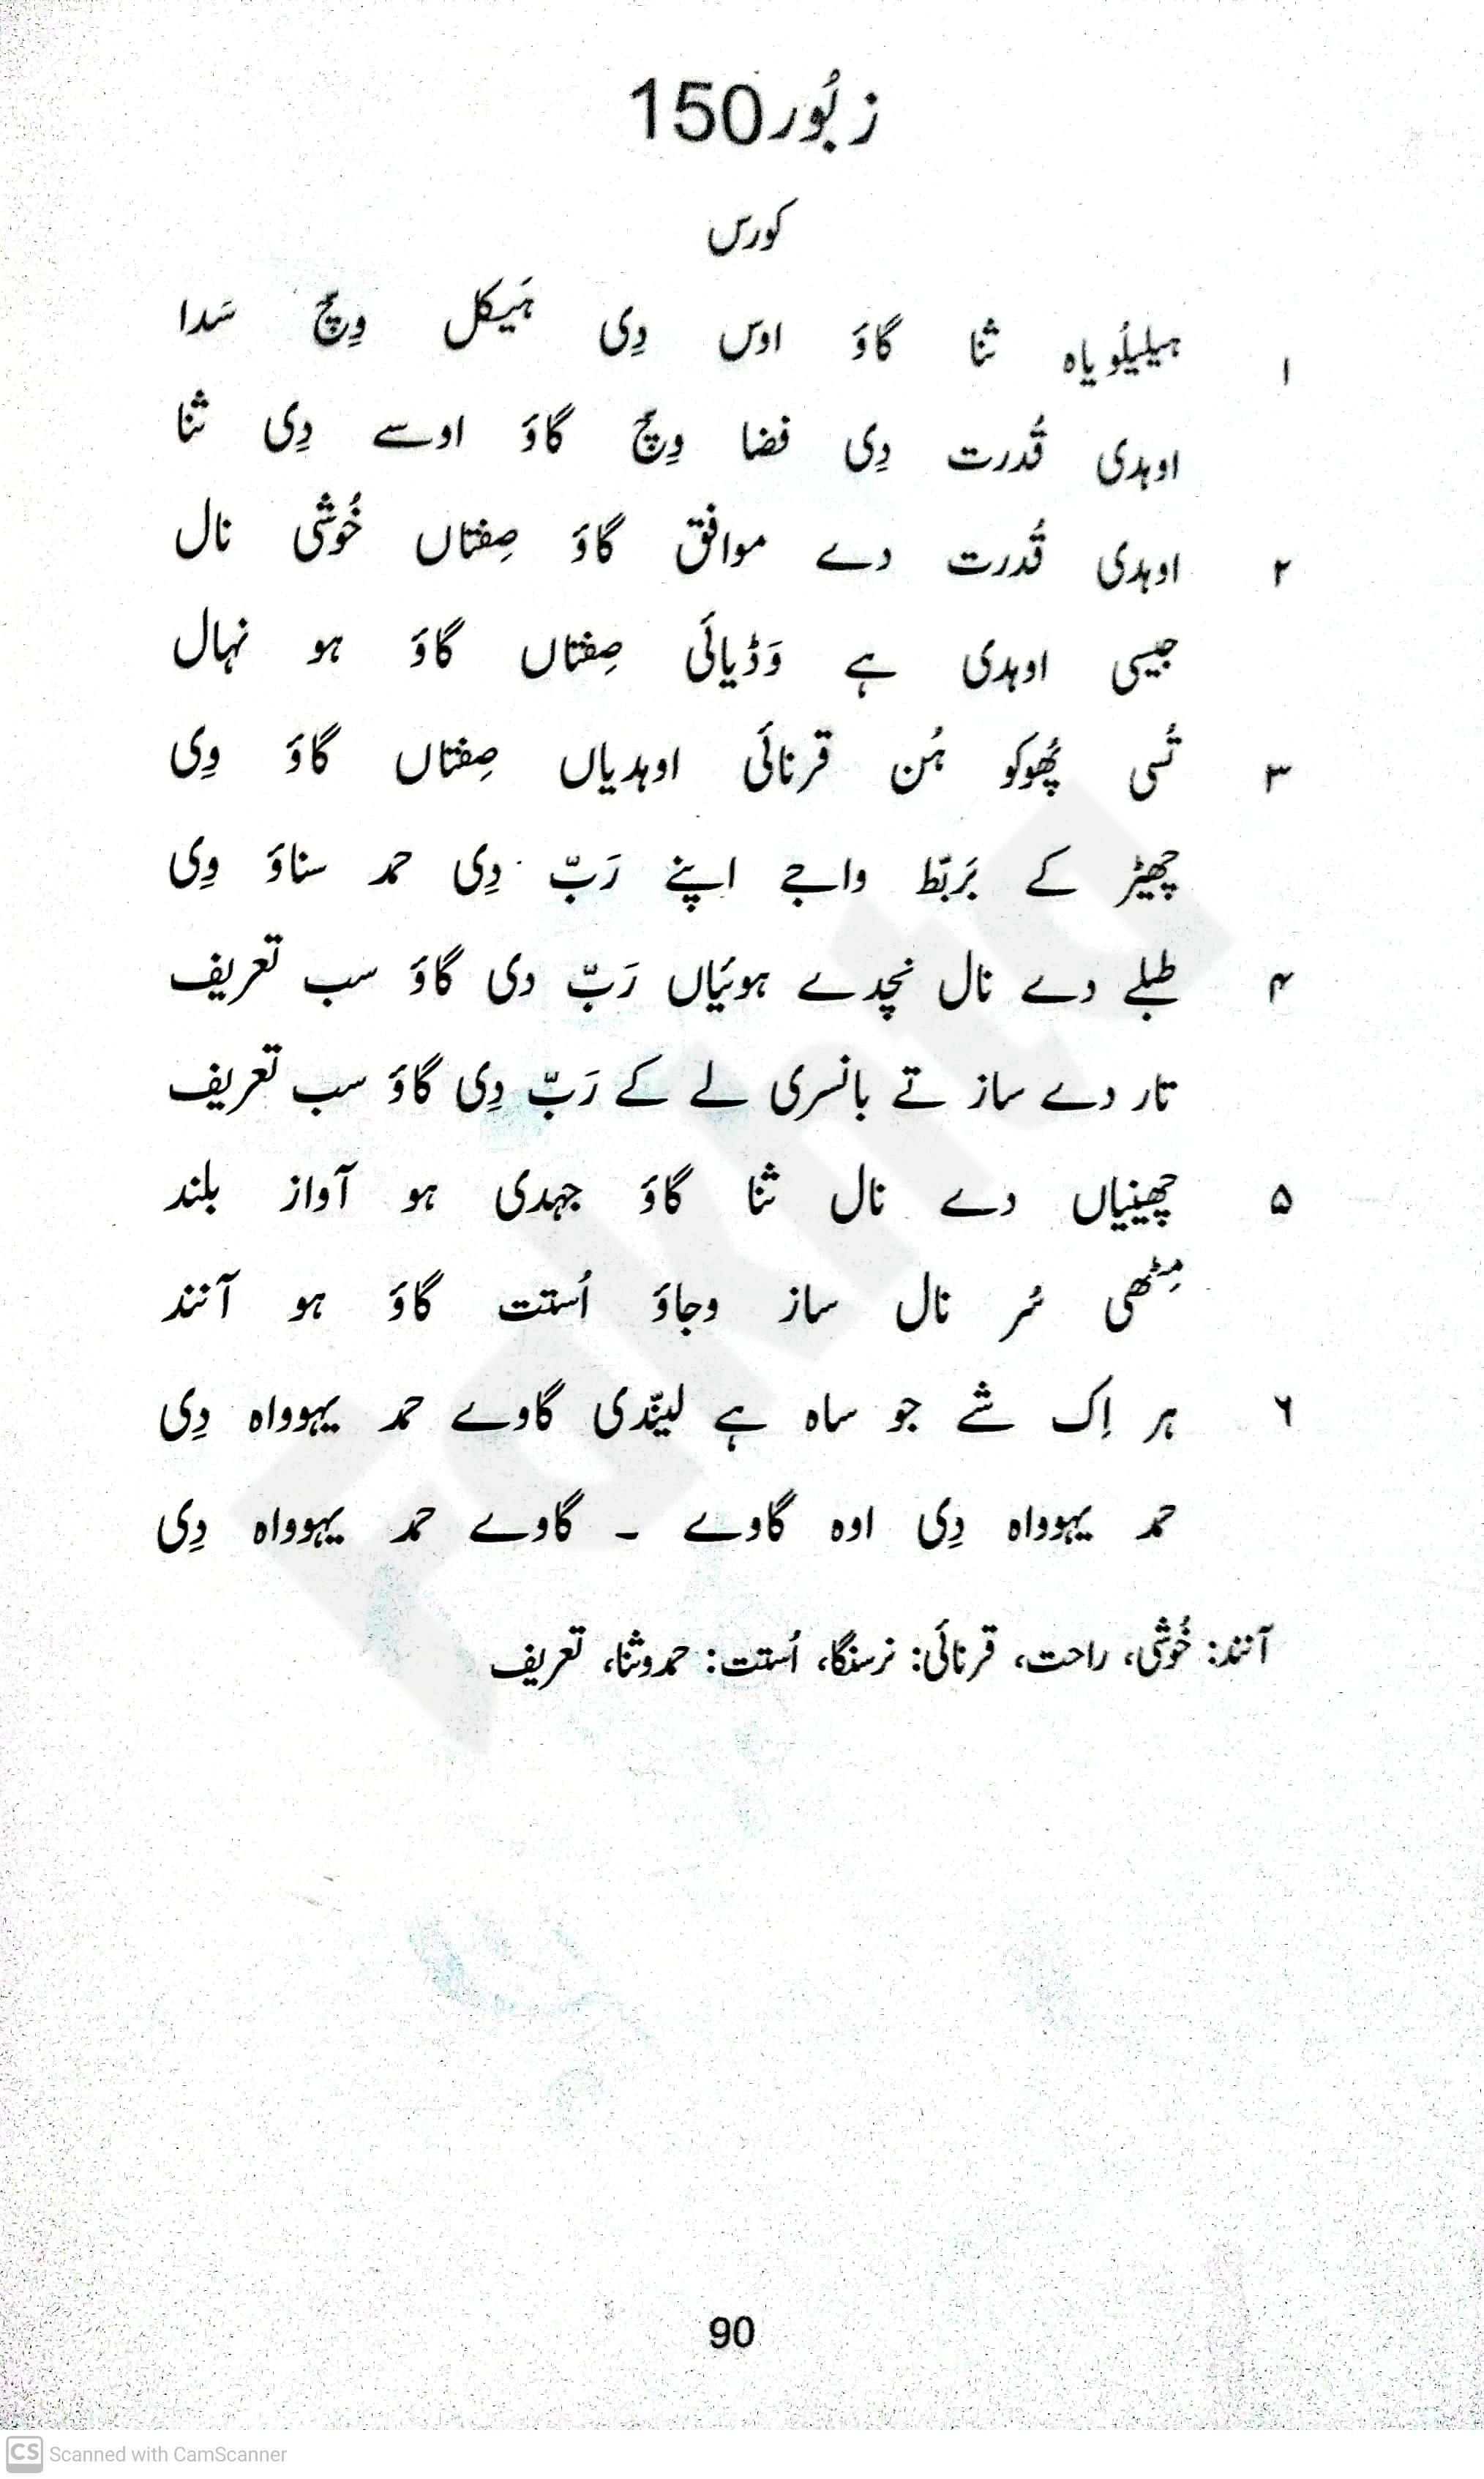 زبُور 150
کورس
۱ ہیلیلُویاہ ثنا گاؤَ اوس دِی ہَیکل وِچّ سَدا
اوہدی قُدرت دِی فضا وِچّ گاؤَ اوسے دِی ثنا
۲ اوہدی قُدرت دے موافق گاؤَ صِفتاں خُوشی نال
جیسی اوہدی ہے وَڈیائَی صِفتاں گاؤَ ہو نہال
۳ تُسی پُھوکو ہُن قرنائَی اوہدیاں صِفتاں گاؤَ وِی
چھیڑ کے بَربَط واجے اپنے رَبّ دِی حمد سناؤَ وِی
۴ طبلے دے نال نچدے ہوئیاں رَبّ دی گاؤَ سب تعریف
تار دے ساز تے بانسری لے کے رَبّ دِی گاؤَ سب تعریف
۵ چھینیاں دے نال ثنا گاؤَ جہدی ہو آواز بلند
مِٹھی سُر نال ساز وجاؤَ اُستت گاؤَ ہو آنند
۶ ہر اِک شے جو ساہ ہے لیندی گاوے حمد یہوواہ دِی
حمد یہوواہ دِی اوہ گاوے ۔ گاوے حمد یہوواہ دِی
آنند: خُوشی، راحت، قرنائَی: نرسنگا، اُستت: حمدوثنا، تعریف
90
CS Scanned with CamScanner